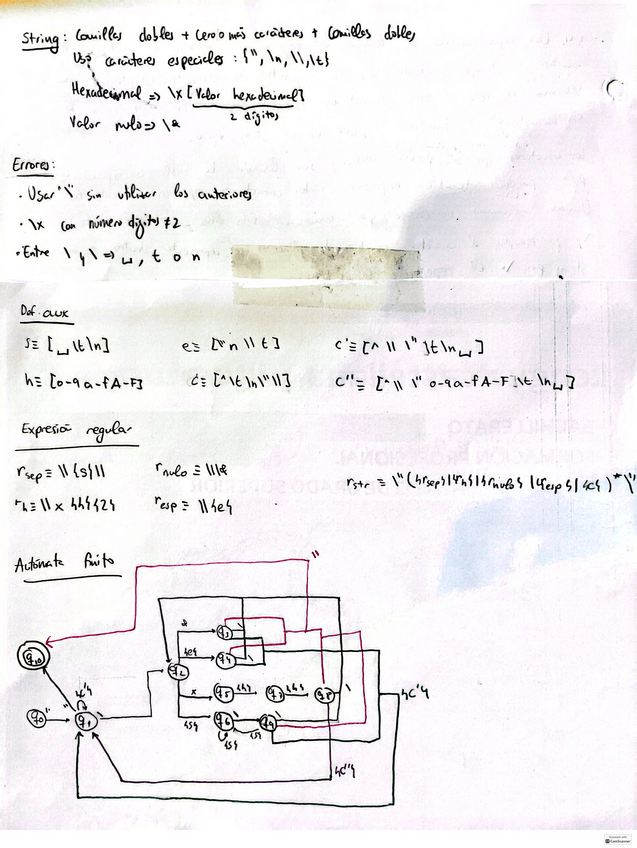 String: Comillas dobles + cero o más carácteres + Comillas dobles
Uso carácteres especiales : {", \n, \\, \t}
Hexadecimal => \x [Valor hexadecimal]
2 dígitos
Valor nulo => \&
Errores:
· Usar "\" sin utilizar los anteriores
· \x con número dígitos ≠ 2
· Entre \ y \ => ␣, t o n
Def. aux
s ≡ [␣\t\n] e ≡ ["n \\ t] c' ≡ [^ \\ \" \t \n ␣]
h ≡ [0-9a-fA-F] c ≡ [^\t\n\"\\] c'' ≡ [^ \\ \" 0-9a-fA-F \t \n ␣]
Expresión regular
r_sep ≡ \\{s}\\ r_nulo ≡ \\&
r_str ≡ \"({r_sep}|{r_h}|{r_nulo}|{r_esp}|{c})*\"
r_h ≡ \\x{h}{2} r_esp ≡ \\{e}
Autómata finito
"
& q3 \
q10 q2 {e} q4
{c'} x q5 {h} q7 {h} q8 \ {c'}
q0 " q1 \ " {s} q6 \ q9 \
{s} {s}
{c''}
Scanned with
CamScanner